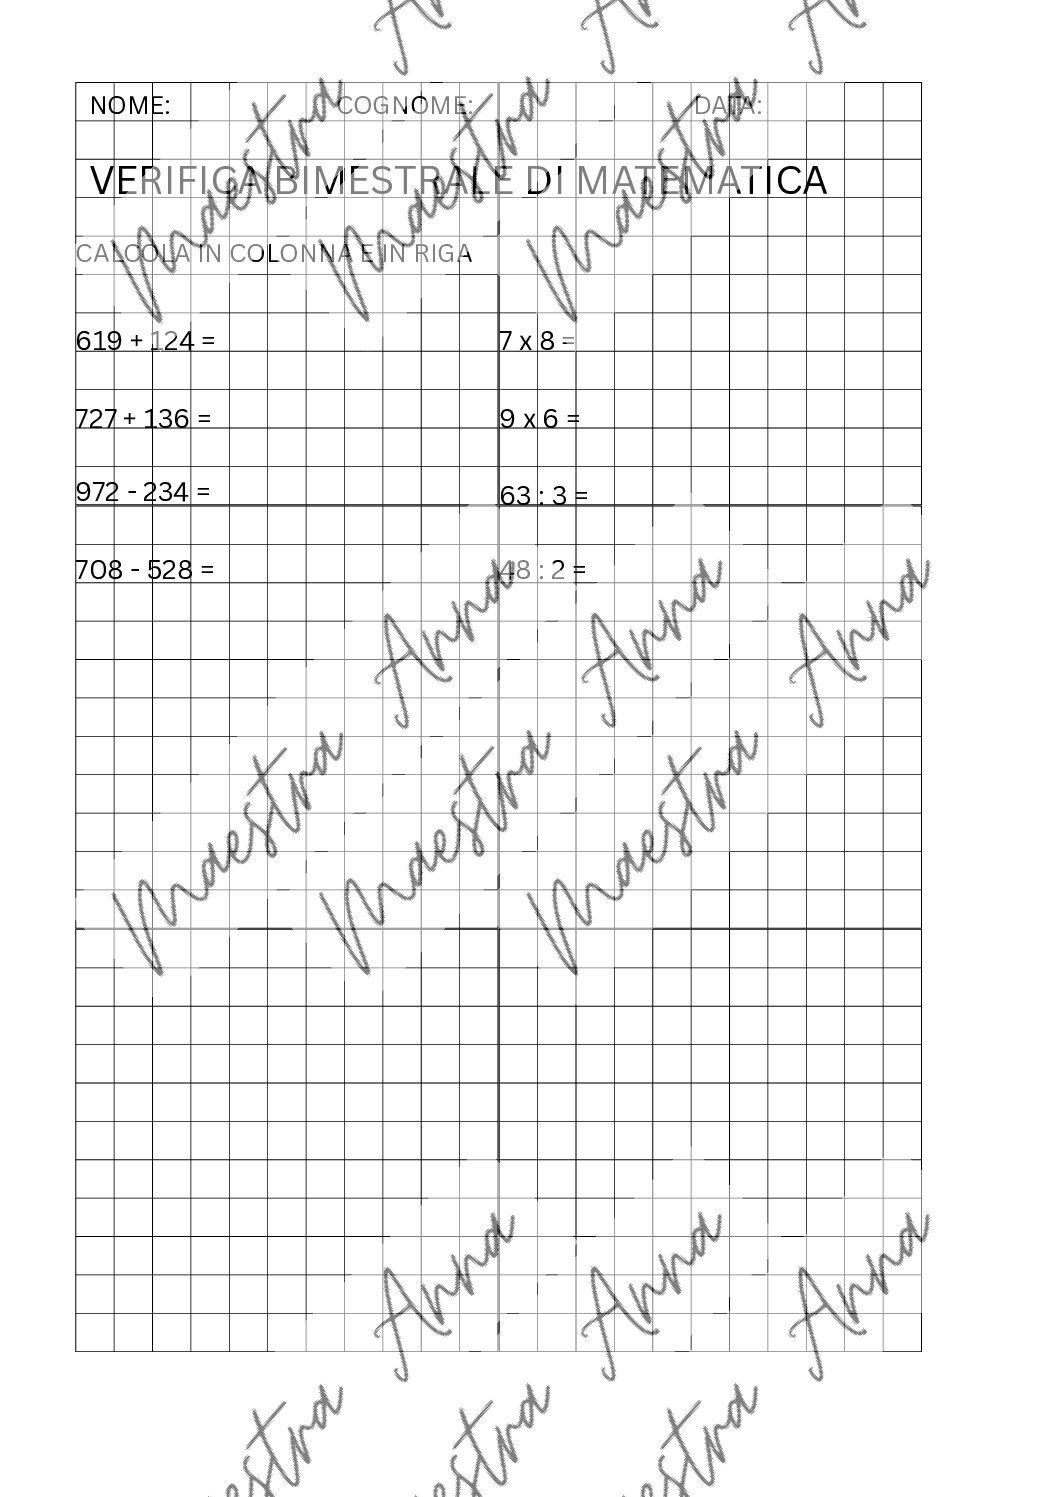 NOME: COGNOME: DATA:
VERIFICA BIMESTRALE DI MATEMATICA
CALCOLA IN COLONNA E IN RIGA
619 + 124 = 7 x 8 =
727 + 136 = 9 x 6 =
972 - 234 = 63 : 3 =
708 - 528 = 48 : 2 =
Maestra Anna
Maestra Anna
Maestra Anna
Maestra Anna
Maestra Anna
Maestra Anna